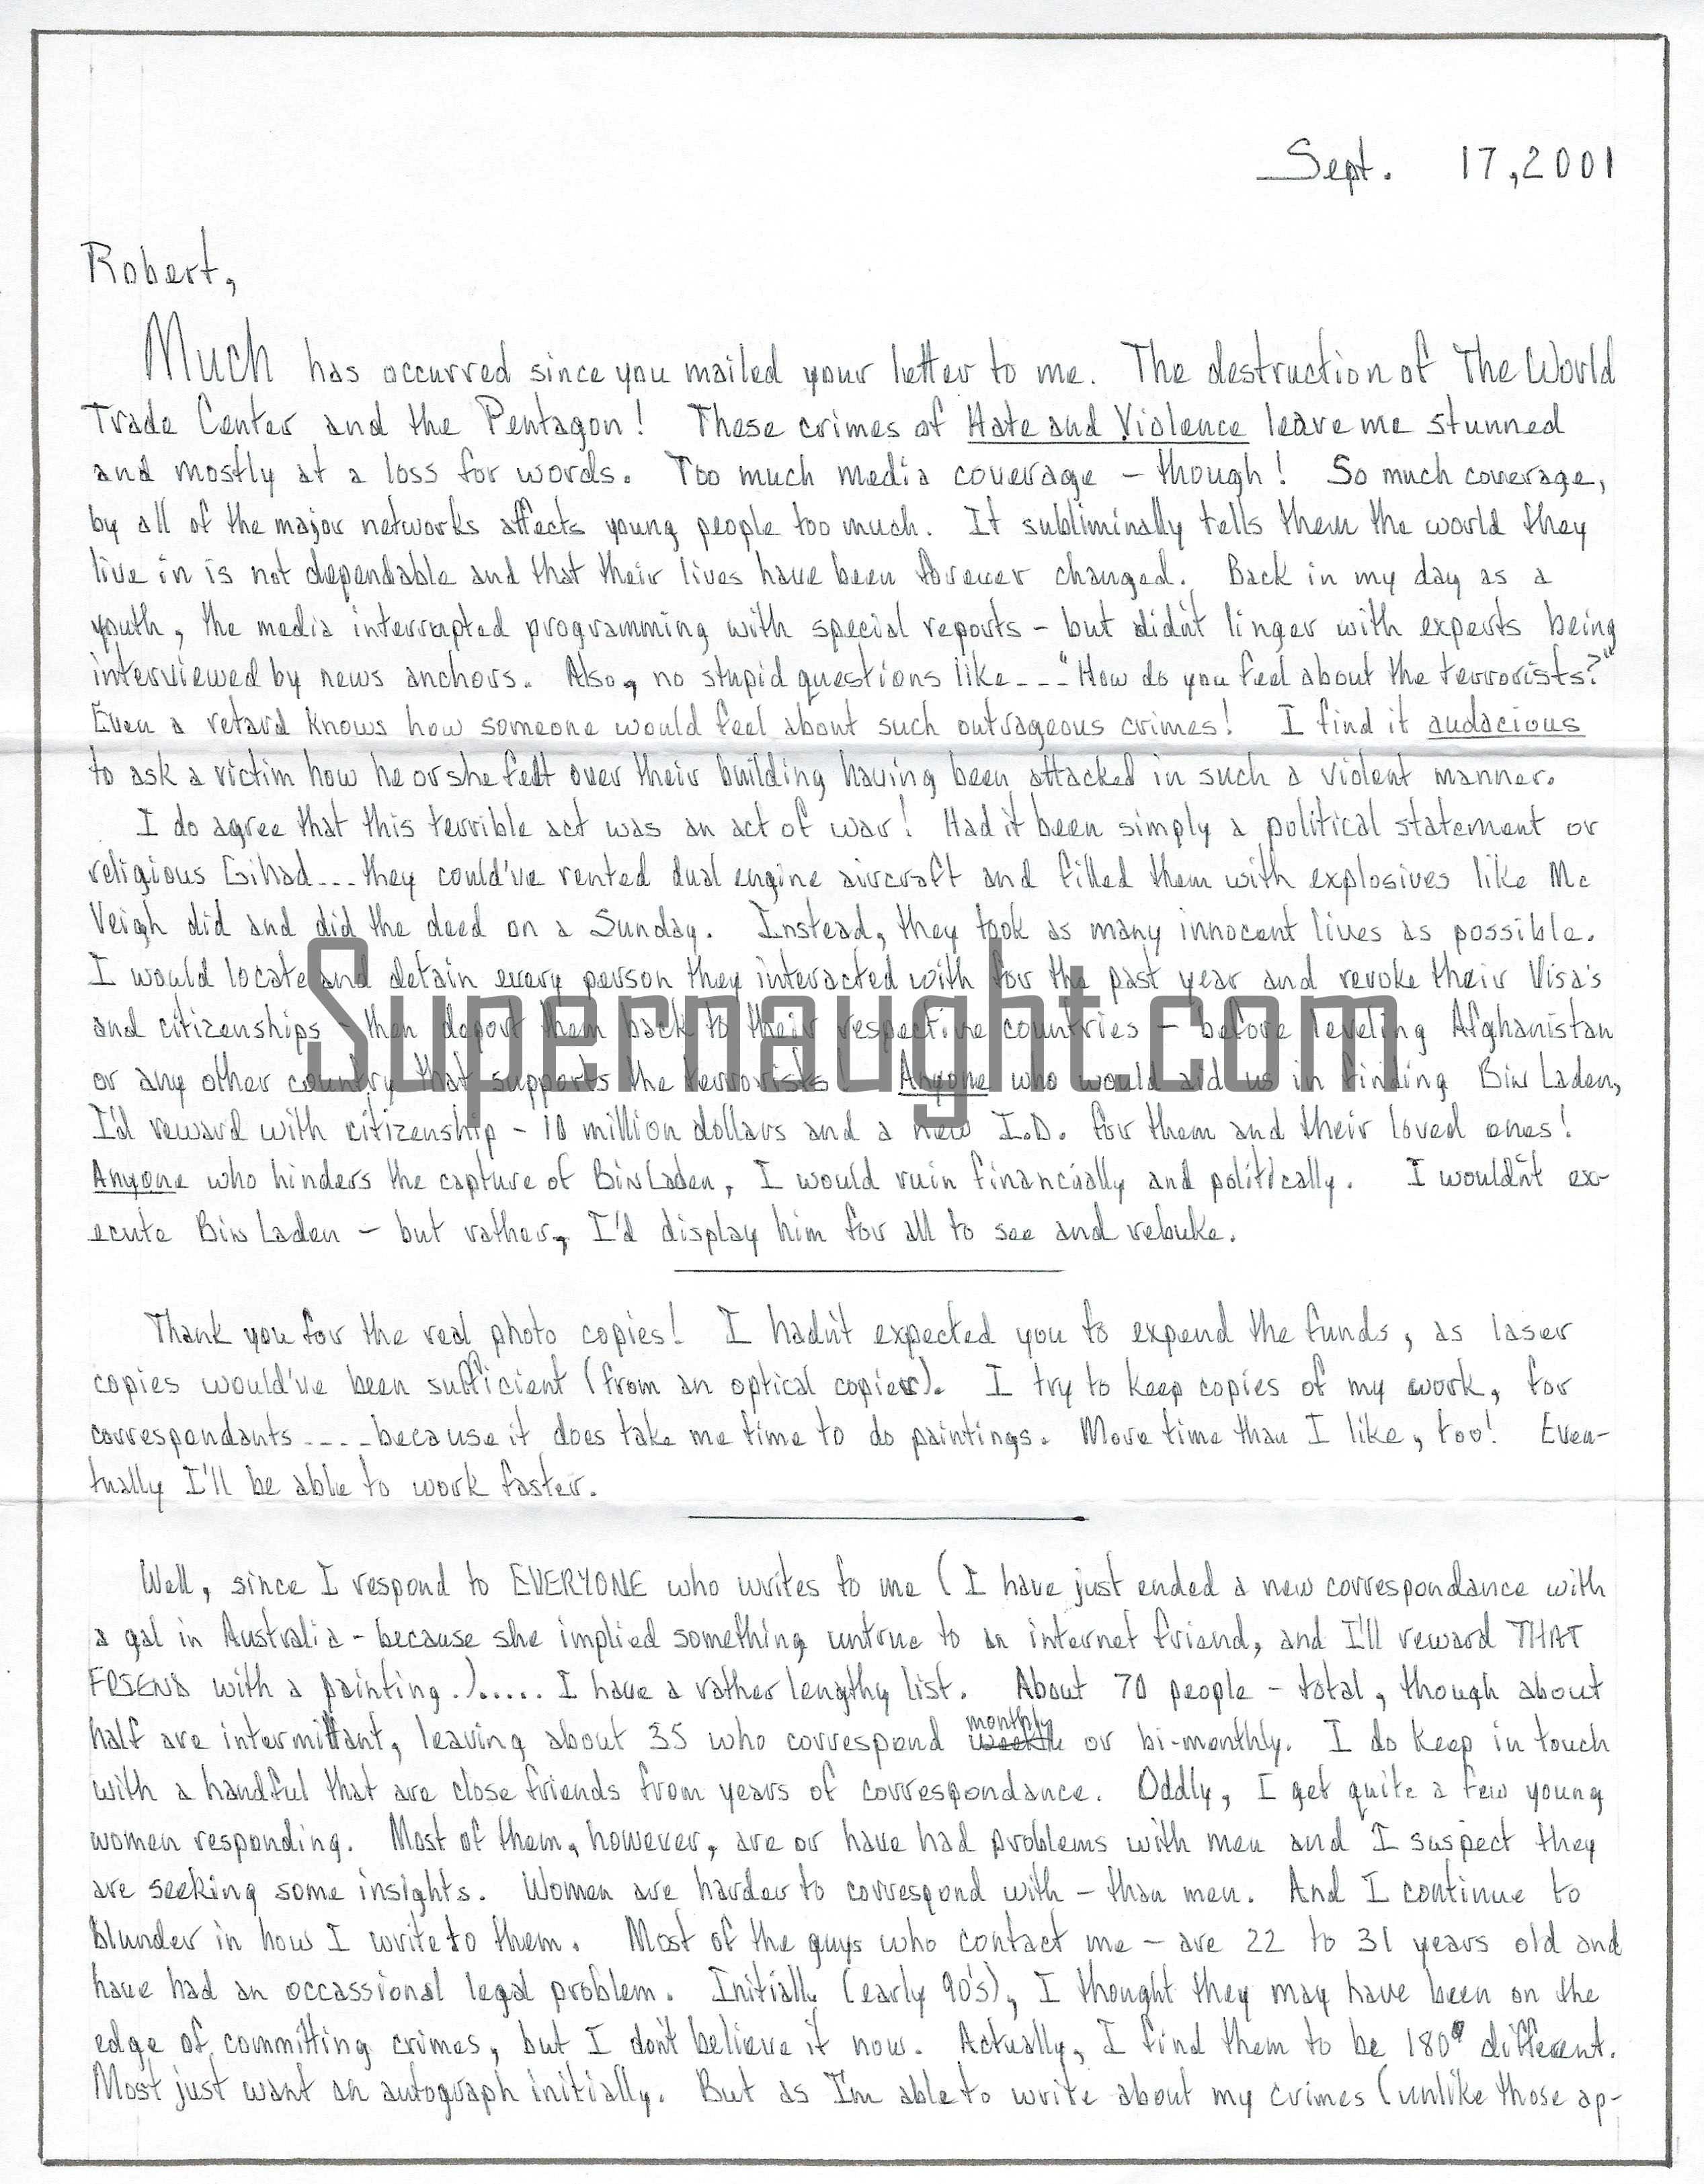 Sept. 17, 2001
Robert,
Much has occurred since you mailed your letter to me. The destruction of The World
Trade Center and the Pentagon! These crimes of Hate and Violence leave me stunned
and mostly at a loss for words. Too much media coverage - though! So much coverage,
by all of the major networks affects young people too much. It subliminally tells them the world they
live in is not dependable and that their lives have been forever changed. Back in my day as a
youth, the media interrupted programming with special reports - but didn't linger with experts being
interviewed by news anchors. Also, no stupid questions like ... "How do you feel about the terrorists?"
Even a retard knows how someone would feel about such outrageous crimes! I find it audacious
to ask a victim how he or she felt over their building having been attacked in such a violent manner.
I do agree that this terrible act was an act of war! Had it been simply a political statement or
religious Gihad... they could've rented dual engine aircraft and filled them with explosives like Mc
Veigh did and did the deed on a Sunday. Instead, they took as many innocent lives as possible.
I would locate and detain every person they interacted with for the past year and revoke their Visa's
and citizenships - then deport them back to their respective countries - before leveling Afghanistan
or any other country that supports the terrorists. Anyone who would aid us in finding Bin Laden,
I'd reward with citizenship - 10 million dollars and a new I.D. for them and their loved ones!
Anyone who hinders the capture of Bin Laden, I would ruin financially and politically. I wouldn't ex-
ecute Bin Laden - but rather, I'd display him for all to see and rebuke.
Supernaught.com
Thank you for the real photo copies! I hadn't expected you to expend the funds, as laser
copies would've been sufficient (from an optical copier). I try to keep copies of my work, for
correspondants .... because it does take me time to do paintings. More time than I like, too! Even-
tually I'll be able to work faster.
Well, since I respond to EVERYONE who writes to me (I have just ended a new correspondance with
a gal in Australia - because she implied something untrue to an internet friend, and I'll reward THAT
FRIEND with a painting.)..... I have a rather lengthy list. About 70 people - total, though about
half are intermittant, leaving about 35 who correspond monthly or bi-monthly. I do keep in touch
with a handful that are close friends from years of correspondance. Oddly, I get quite a few young
women responding. Most of them, however, are or have had problems with men and I suspect they
are seeking some insights. Women are harder to correspond with - than men. And I continue to
blunder in how I write to them. Most of the guys who contact me - are 22 to 31 years old and
have had an occassional legal problem. Initially (early 90's), I thought they may have been on the
edge of committing crimes, but I don't believe it now. Actually, I find them to be 180° different.
Most just want an autograph initially. But as I'm able to write about my crimes (unlike those ap-